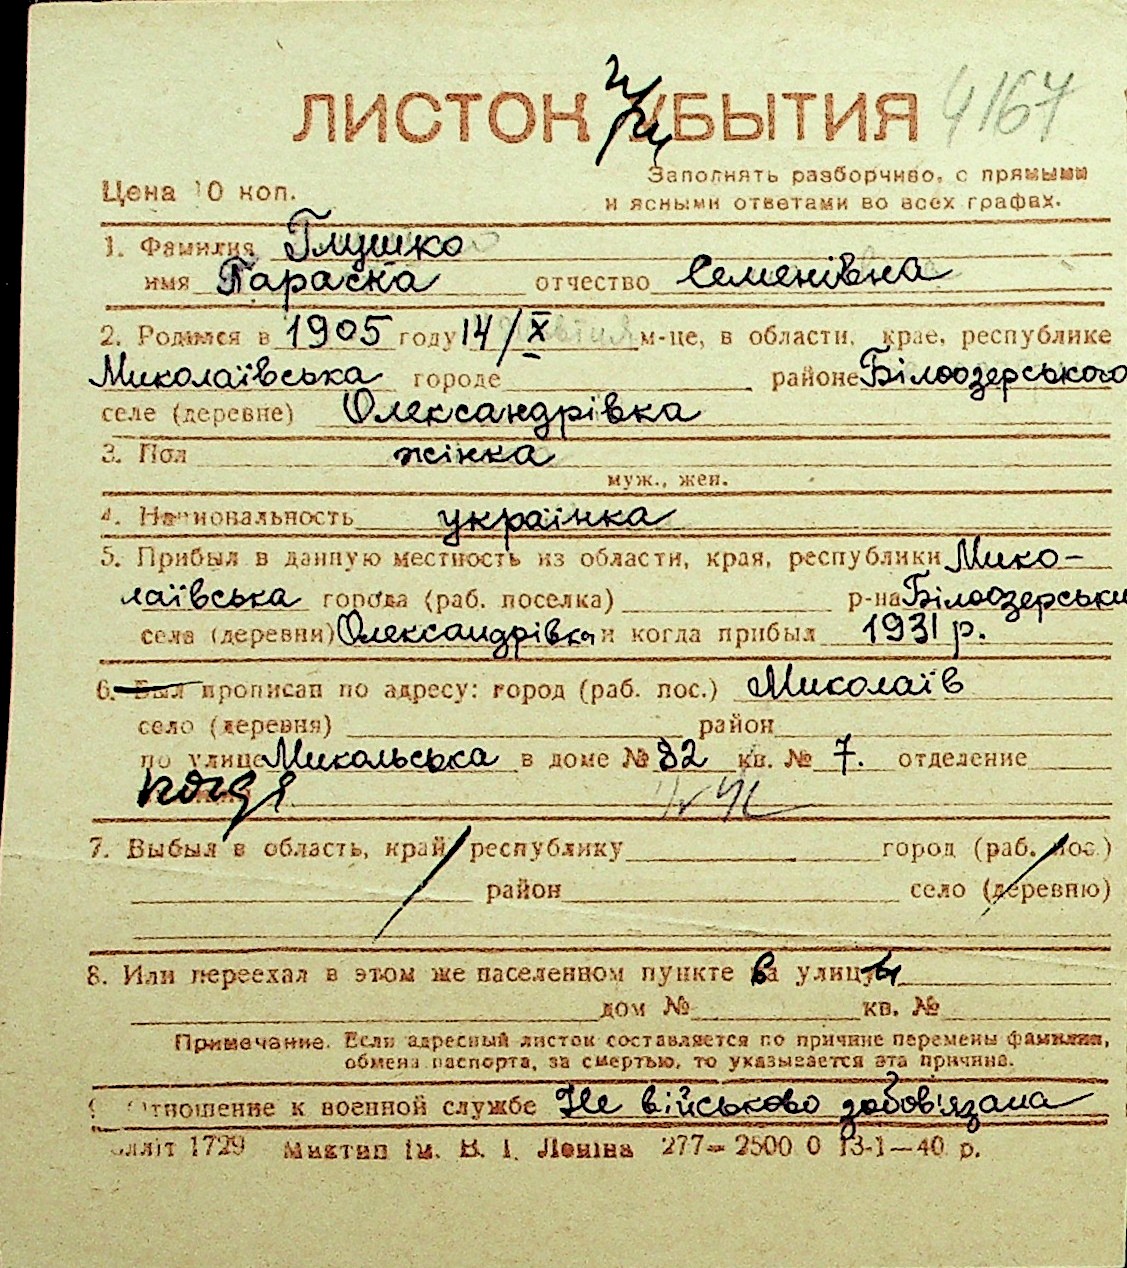 ЛИСТОК УБЫТИЯ 4167
Цена 10 коп.
Заполнять разборчиво, с прямыми
и ясными ответами во всех графах.
1. Фамилия Глушко
имя Параска отчество Семенівна
2. Родился в 1905 году 14/X м-це, в области, крае, республике
Миколаївська городе районе Білоозерського
селе (деревне) Олександрівка
3. Пол жінка
муж., жен.
4. Национальность українка
5. Прибыл в данную местность из области, края, республики Мико-
лаївська города (раб. поселка) р-на Білоозерськи
села (деревни) Олександрівка и когда прибыл 1931 р.
6. Был прописан по адресу: город (раб. пос.) Миколаїв
село (деревня) район
по улице Микольська в доме № 82 кв. № 7. отделение
7. Выбыл в область, край, республику город (раб. пос.)
район село (деревню)
8. Или переехал в этом же населенном пункте ва улицы
дом № кв. №
Примечание. Если адресный листок составляется по причине перемены фамилии,
обмена паспорта, за смертью, то указывается эта причина.
9. Отношение к военной службе Не військово зобов'язана
лліт 1729 Миктип ім. В. І. Леніна 277—2500 0 13-1—40 р.